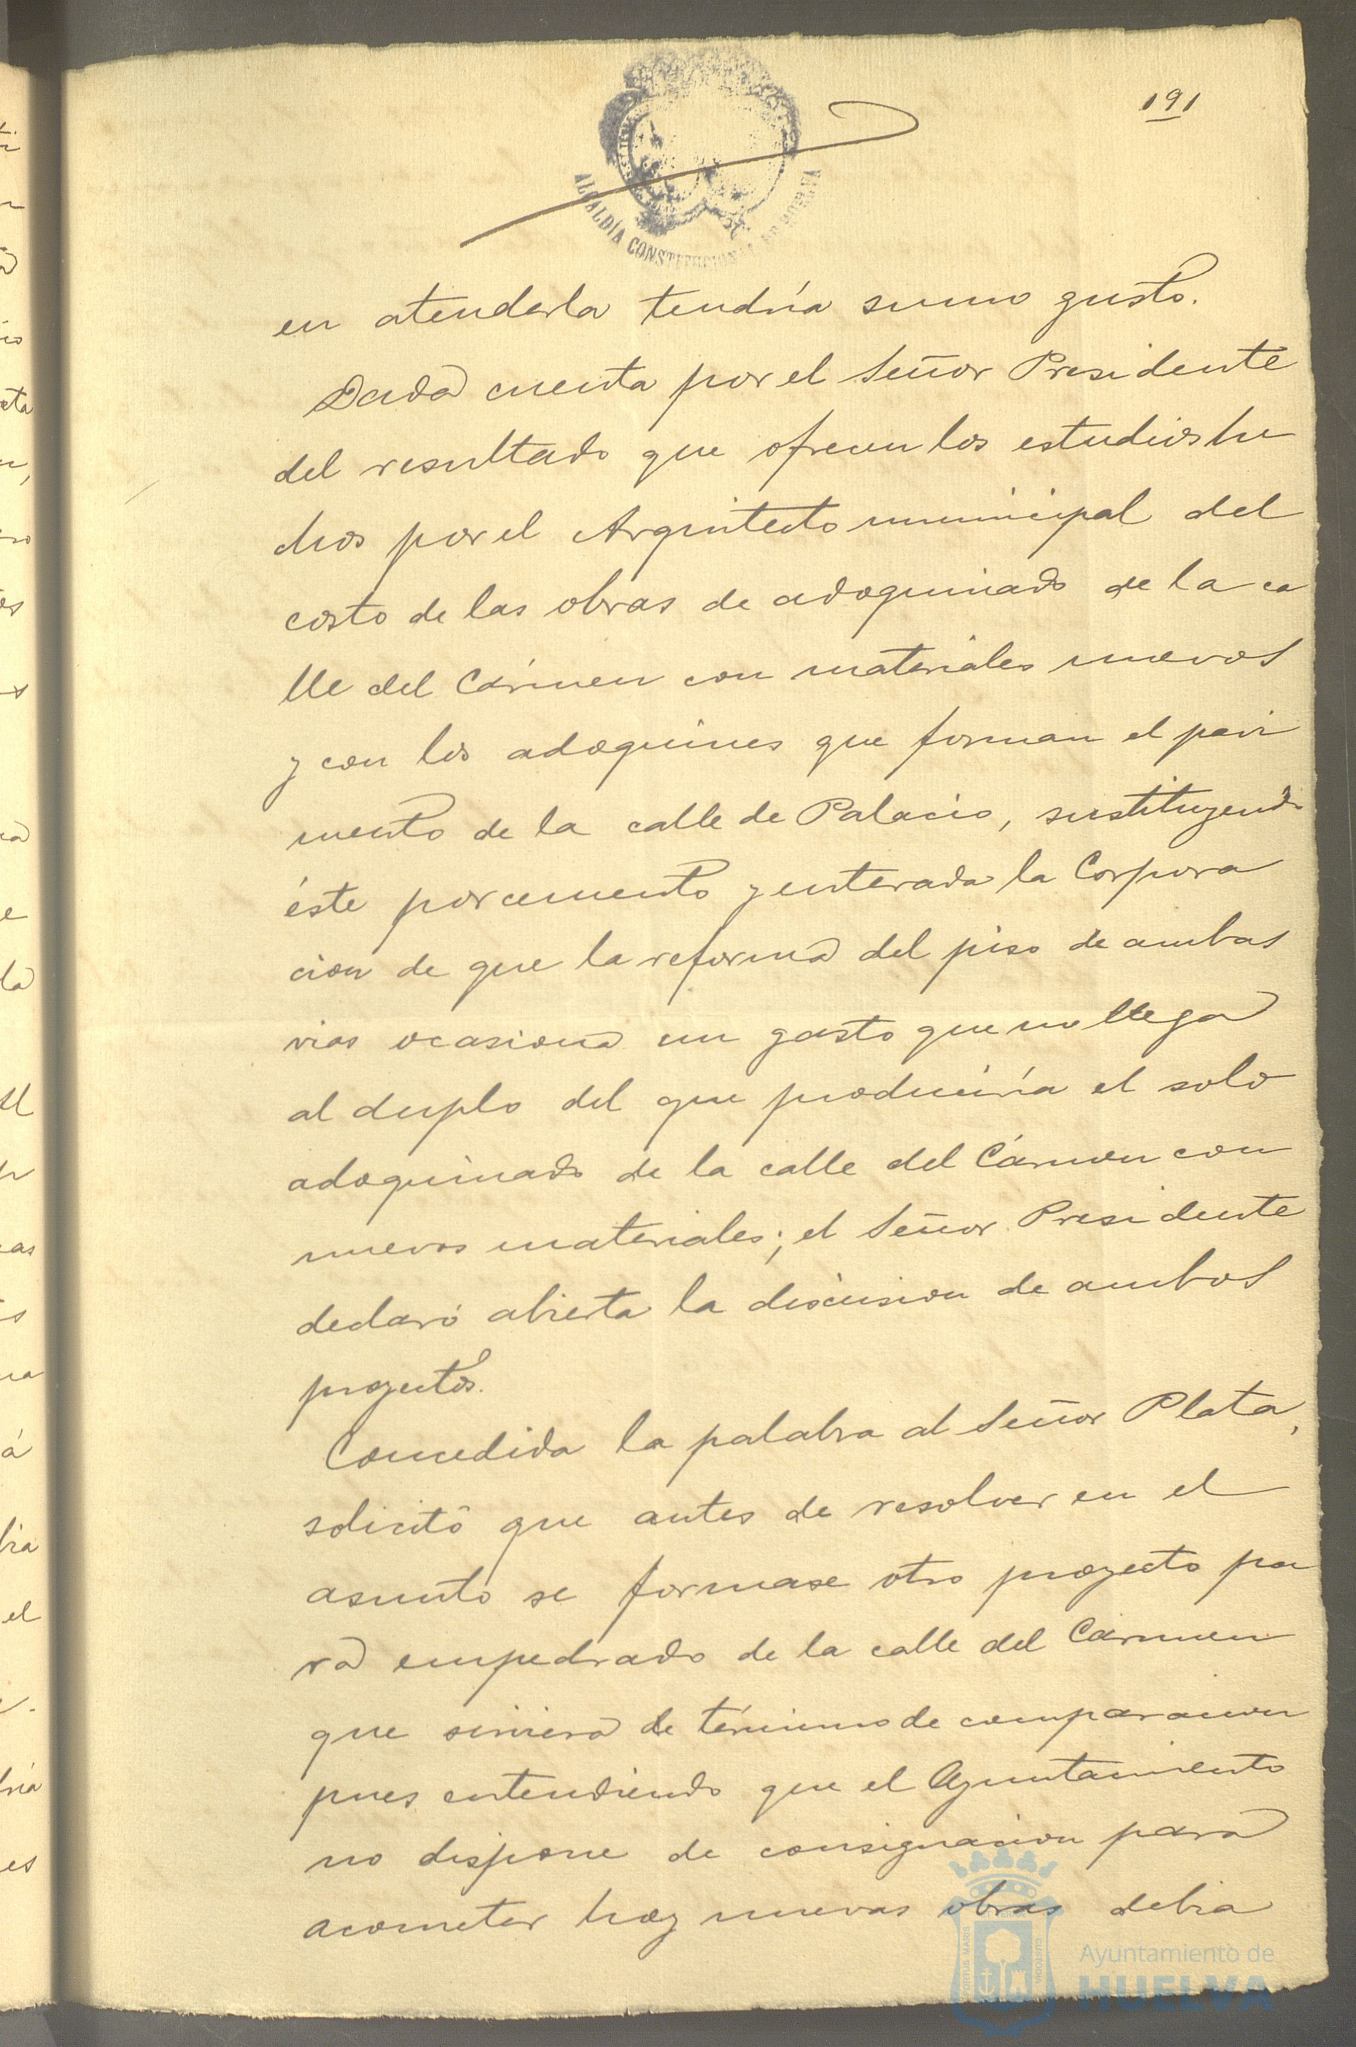 191
ALCALDÍA CONSTITUCIONAL DE HUELVA
en atenderla tendría sumo gusto.
Dada cuenta por el Señor Presidente
del resultado que ofrecen los estudios he
chos por el Arquitecto municipal del
costo de las obras de adoquinado de la ca
lle del Cármen con materiales nuevos
y con los adoquines que forman el pavi
mento de la calle de Palacio, sustituyendo
éste por cemento y enterada la Corpora
cion de que la reforma del piso de ambas
vias ocasiona un gasto que no llega
al duplo del que produciría el solo
adoquinado de la calle del Cármen con
nuevos materiales; el Señor Presidente
declaró abierta la discusion de ambos
proyectos.
Concedida la palabra al Señor Plata,
solicitó que antes de resolver en el
asunto se formase otro proyecto pa
ra empedrado de la calle del Cármen
que sirviera de término de comparacion
pues entendiendo que el Ayuntamiento
no dispone de consignacion para
acometer hoy nuevas obras debia
PORTUS MARIS
CUSTODIA
Ayuntamiento de
HUELVA